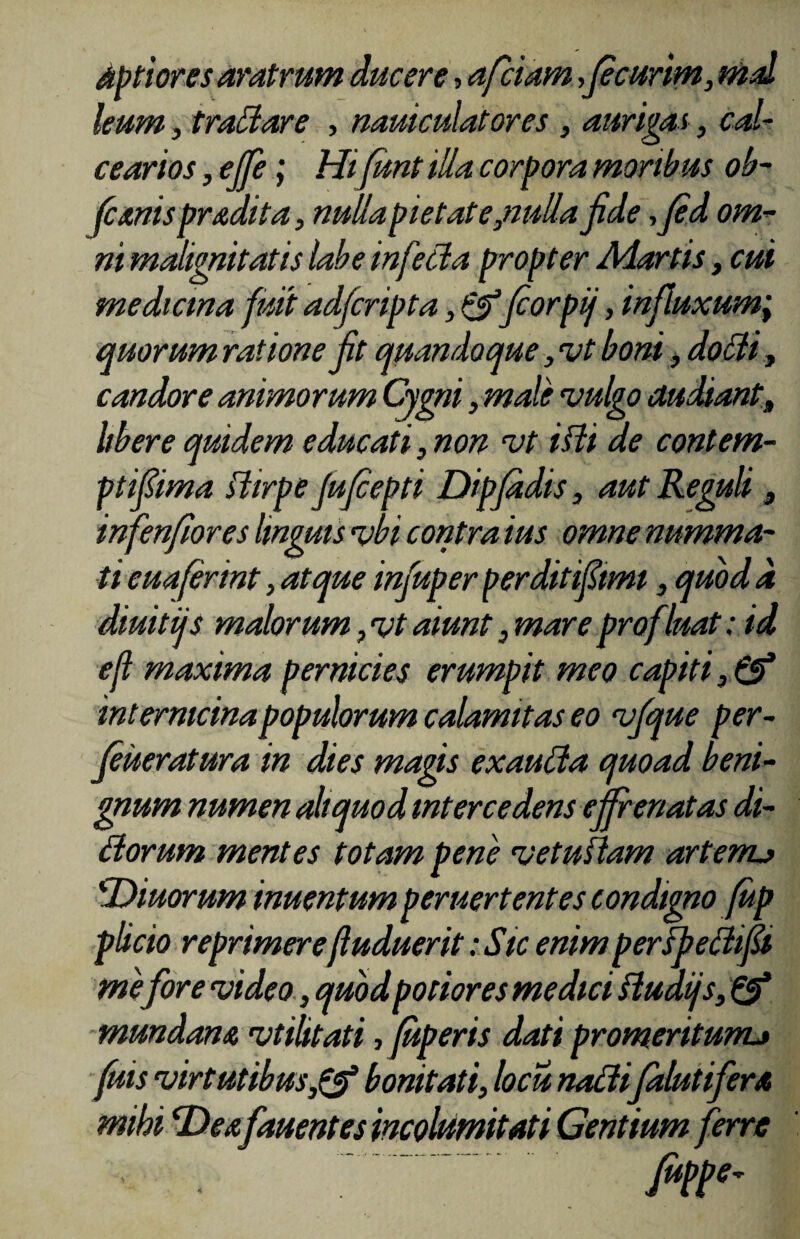 aptiores aratrum ducere, asciam, securim, mal
leum, tractare , nauiculatores , aurigas, cal-
cearios, esse ; Hi sunt illa corpora moribus ob-
scænis prædita, nulla pietate, nulla fide, sed om-
ni malignitatis labe infecta propter Martis, cui
medicina fuit adscripta, & scorpij, influxum;
quorum ratione fit quandoque, vt boni, docti,
candore animorum Cygni, male vulgo audiant,
libere quidem educati, non vt isti de contem-
ptissima stirpe suscepti Dipsadis, aut Reguli,
infensiores linguis vbi contra ius omne numma-
ti euaserint, atque insuper perditissimi, quod à
diuitijs malorum, vt aiunt, mare profluat: id
est maxima pernicies erumpit meo capiti, &
internicina populorum calamitas eo vsque per-
seueratura in dies magis exaucta quoad beni-
gnum numen aliquod intercedens effrenatas di-
ctorum mentes totam pene vetustam artem
Diuorum inuentum peruertentes condigno sup
plicio reprimere studuerit: Sic enim perspectissi
me fore video, quod potiores medici studijs, &
mundanæ vtilitati, superis dati promeritum
suis virtutibus, & bonitati, locū nacti salutiferæ
mihi Deæ fauentes incolumitati Gentium ferre
suppe-